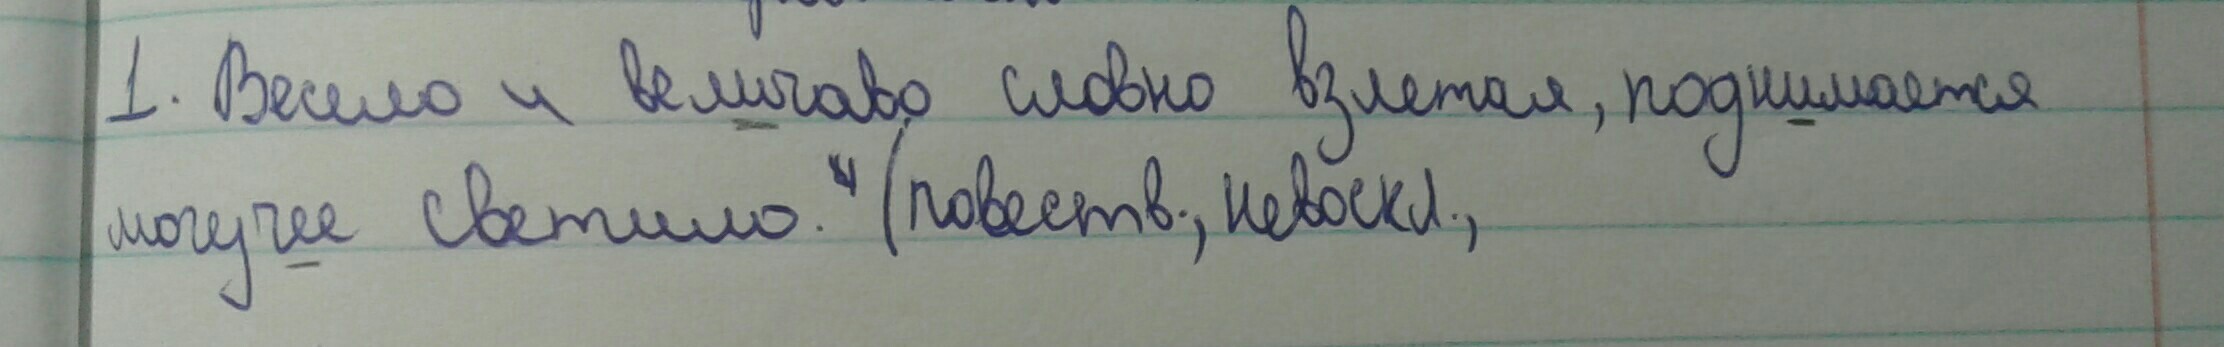 1. Весело и величаво, словно взлетая, поднимается
могучее светило." (повеств., невоскл.,